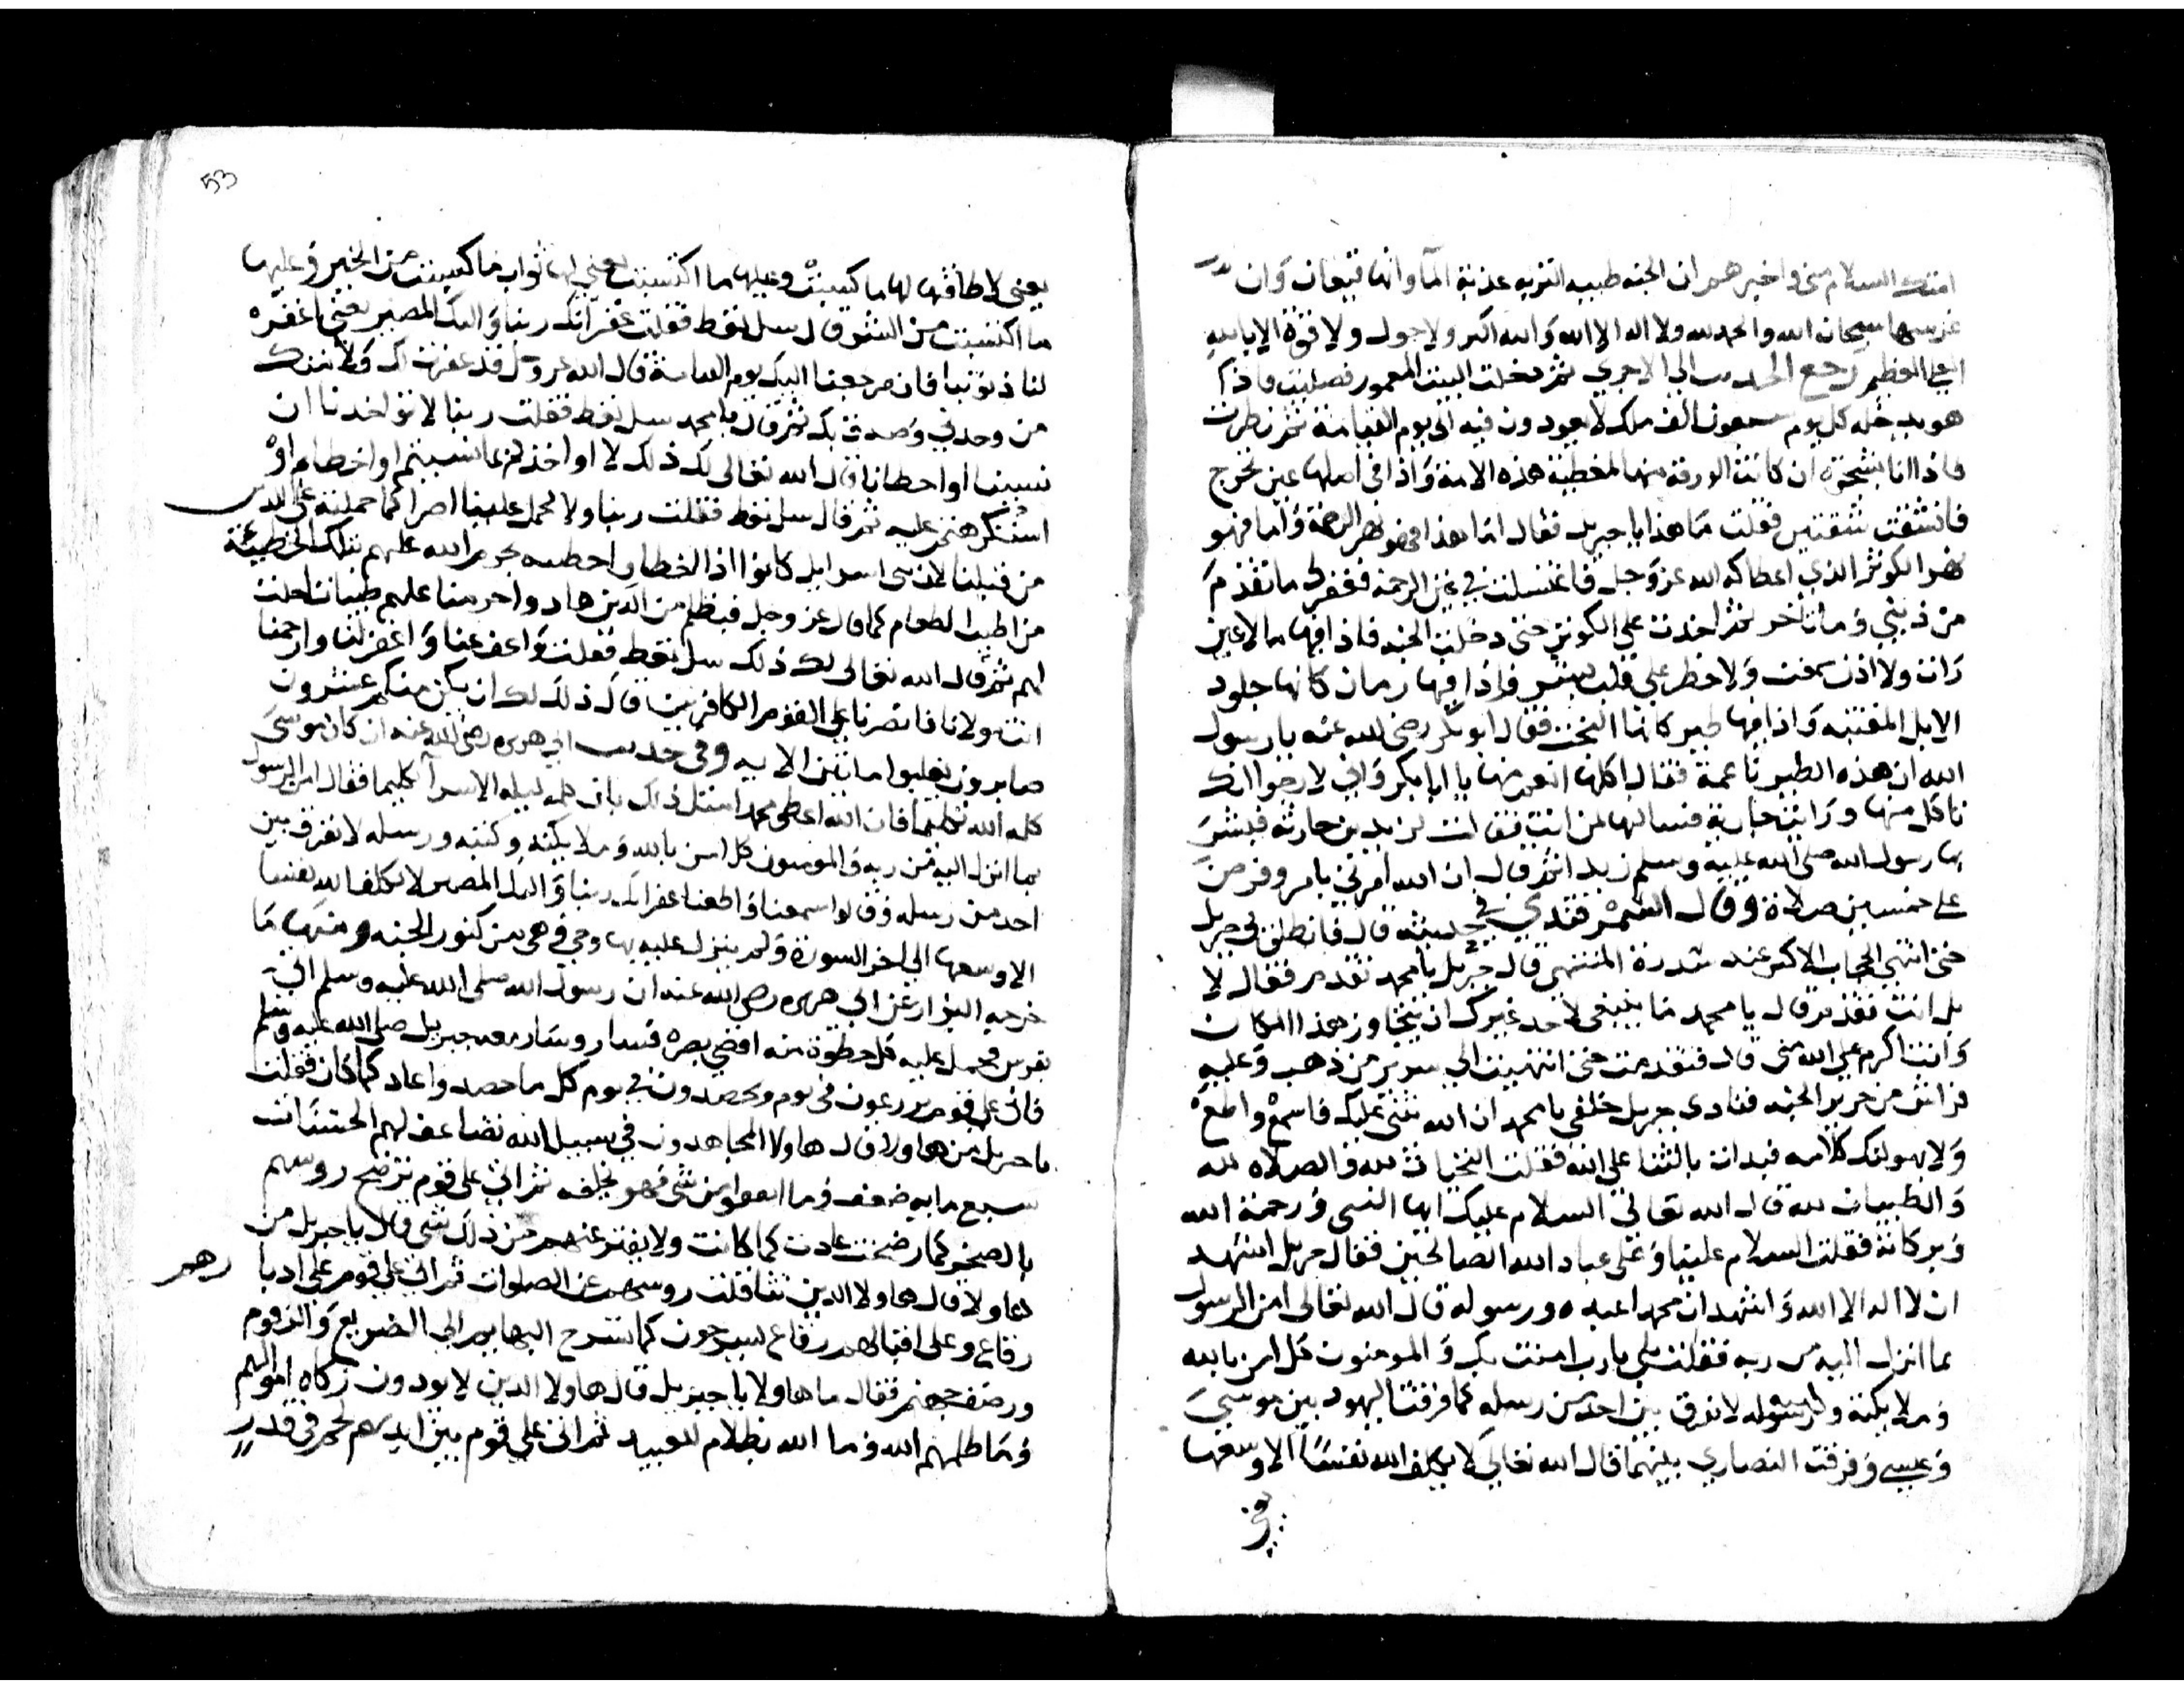 امتك السلام مني واخبرهم ان الجنه طيبه التربه عذبة المآ وانها قيعان وان
غرسها سبحان الله والحمد لله ولا اله الا الله والله اكبر ولا حول ولا قوة الا بالله
العلي العظيم رجع الحديث الي الاجري ثم دخلت البيت المعمور فصليت فاذا
هو يدخله كل يوم سبعون الف ملك لا يعودون فيه الى يوم القيامة ثم نظرت
فاذا انا بشجرة ان كانت الورقة منها لمغطية هذه الامة واذا في اصلها عين تخرج
فانشقت شقتين فقلت ما هذا يا جبريل فقال اما هذا فهو نهر الرحمة واما فهو
نهر الكوثر الذي اعطاكه الله عز وجل فاغتسلت في عين الرحمة فغفر لي ما تقدم
من ذنبي وما تاخر ثم اخذت علي الكوثر حتى دخلت الجنه فاذا فيها ما لا عين
رات ولا اذن سمعت ولا خطر علي قلب بشر فاذا فيها رمان كانها جلود
الابل المقتبه واذا فيها طير كانها البخت فقال ابو بكر رضى الله عنه يا رسول
الله ان هذه الطير ناعمة فقال اكلها انعم منها يا ابا بكر واني لارجوا ان
تاكل منها ورايت جارية فسالتها لمن انت فقالت لزيد بن حارثه فبشر
بها رسول الله صلى الله عليه وسلم زيدا ثم قال ان الله امرني بامر وفرض
على خمسين صلاة وقال السمرقندي في حديثه قال فانطلق بي جبريل
حتى انتهي الحجاب الاكبر عند سدرة المنتهى قال جبريل يا محمد تقدم فقال لا
بل انت تقدم قال يا محمد ما ينبغى لاحد غيرك ان يتجاوز هذا المكان
وانت اكرم علي الله مني قال فتقدمت حتى انتهيت الي سرير من ذهب وعليه
فراش من حرير الجنه فنادى جبريل خلفي يا محمد ان الله يثني عليك فاسمع واطع
ولا يهولنك كلامه فبدات بالثنا على الله فقلت التحيات لله والصلاه لله
والطيبات لله قال الله تعالى السلام عليك ايها النبي ورحمة الله
وبركاته فقلت السلام علينا وعلى عباد الله الصالحين فقال جبريل اشهد
ان لا اله الا الله واشهد ان محمدا عبده ورسوله قال الله تعالى امن الرسول
بما انزل اليه من ربه فقلت بلي يا رب امنت بك والمومنون كل امن بالله
وملايكته ورسوله لا نفرق بين احد من رسله كما فرقت اليهود بين موسى
وعيسي وفرقت النصاري بينهما قال الله تعالي لا يكلف الله نفسا الا وسعها
53
يعنى لا طاقتها لها ما كسبت وعليها ما اكتسبت يعني لها ثواب ما كسبت من الخير وعليها
ما اكتسبت من الشر قال سل تعط فقلت غفرانك ربنا واليك المصير يعني اغفر
لنا ذنوبنا فان مرجعنا اليك يوم القيامة قال الله عز وجل قد غفرت لك ولامتك
من وحدني وصدق بك ثم قال يا محمد سل تعط فقلت ربنا لا تواخذنا ان
نسينا او اخطانا قال الله تعالى لك ذلك لا اواخذكم بما نسيتم او اخطاتم او
استكرهتم عليه ثم قال سل تعط فقلت ربنا ولا تحمل علينا اصرا كما حملته على الذين
من قبلنا لان بنى اسرايل كانوا اذا اخطاوا خطيه حرم الله عليهم بتلك الخطيئة
من اطيب الطعام كما قال عز وجل فبظلم من الذين هادوا حرمنا عليهم طيبات احلت
لهم ثم قال الله تعالى لك ذلك سل تعط فقلت واعف عنا واغفر لنا وارحمنا
انت مولانا فانصرنا على القوم الكافرين قال ذلك لك ان يكن منكم عشرون
صابرون يغلبوا مائتين الايه وفي حديث ابي هريره رضى الله عنه ان كان موسى
كلمه الله تكليما فان الله اعطى محمدا مثل ذلك بان كلمه ليله الاسرآ تكليما فقال امن الرسول
بما انزل اليه من ربه والمومنون كل امن بالله وملايكته وكتبه ورسله لا نفرق بين
احد من رسله وقالوا سمعنا واطعنا غفرانك ربنا واليك المصير لا يكلف الله نفسا
الا وسعها الي اخر السورة ولم ينزل عليه بها وحي فهي من كنوز الجنه ومنها ما
خرجه البزار عن ابي هريره رضى الله عنه ان رسول الله صلى الله عليه وسلم اتي
بفرس فحمل عليه كل خطوة منه اقصي بصره فسار وسار معه جبريل صلى الله عليه وسلم
فاتى على قوم يزرعون في يوم ويحصدون في يوم كل ما حصد واعاد كما كان فقلت
يا جبريل من هاولا قال هاولا المجاهدون في سبيل الله تضاعف لهم الحسنات
بسبع مايه ضعف وما انفقوا من شى فهو يخلفه ثم اتي على قوم ترضخ روسهم
بالصخر كما رضخت عادت كما كانت ولا يفتر عنهم من ذلك شى قال يا جبريل من
هاولا قال هاولا الذين تثاقلت روسهم عن الصلوات ثم اتي علي قوم على ادبارهم
رقاع وعلى اقبالهم رقاع يسرحون كما تسرح البهايم الي الضريع والزقوم
ورضف جهنم فقال ما هاولا يا جبريل قال هاولا الذين لا يودون زكاه اموالهم
وما ظلمهم الله وما الله بظلام للعبيد ثم اتى علي قوم بين ايديهم لحم في قدر